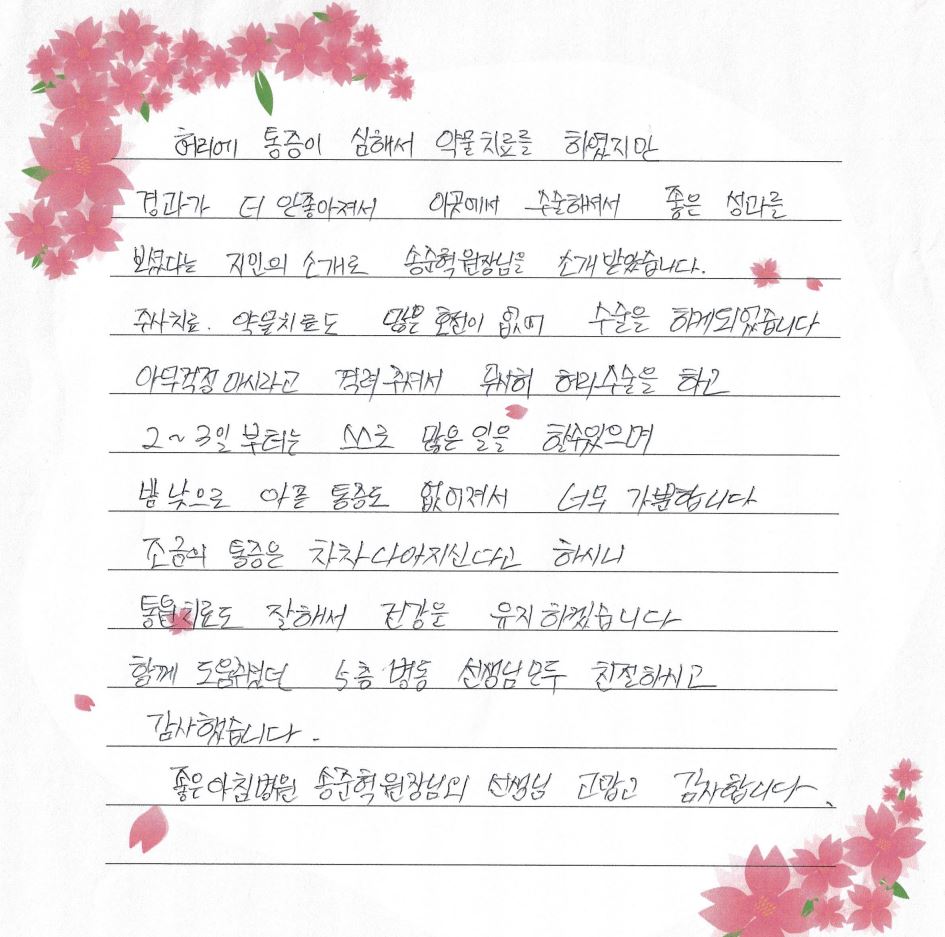 허리에 통증이 심해서 약물치료를 하였지만
경과가 더 안좋아져서 이곳에서 수술해셔서 좋은 성과를
보셨다는 지인의 소개로 송준혁원장님을 소개받았습니다.
주사치료. 약물치료도 많은 호전이 없어 수술을 하게되었습니다
아무걱정마시라고 격려주셔서 무사히 허리수술을 하고
2~3일부터는 스스로 많은 일을 할수있으며
밤낮으로 아픈 통증도 없어져서 너무 가뿐합니다
조금의 통증은 차차나아지신다고 하시니
통원치료도 잘해서 건강을 유지하겠습니다
함께 도움주셨던 5층병동 선생님모두 친절하시고
감사했습니다.
좋은아침병원 송준혁원장님외 선생님 고맙고 감사합니다.